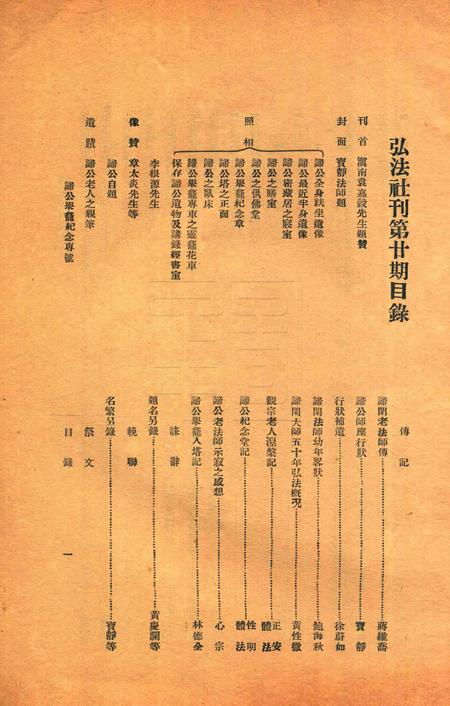 弘法社刊第廿期目錄
刊首 滇南袁嘉穀先生題贊
封面 寶靜法師題
照相
諦公全身趺坐遺像
諦公最近半身遺像
諦公密藏居之寢室
諦公之膳室
諦公之供佛堂
諦公舉龕紀念章
諦公塔之正面
諦公之臥床
諦公舉龕專車之靈龕花車
保存諦公遺物及講錄經書室
李根源先生
像贊 章太炎先生等
諦公自題
遺蹟 諦公老人之親筆
諦公舉龕紀念專號
傳記
諦閑老法師傳 蔣維喬
諦公師座行狀 寶靜
行狀補遺 徐蔚如
諦閑法師幼年畧狀 鮑海秋
諦閑大師五十年弘法概況 黃性徹
觀宗老人湼槃記 正安 體法
諦公紀念堂記 性明 體法
諦公老法師示寂之感想 心宗
諦公舉龕入塔記 林德全
誄辭
題名另錄 黃慶瀾等
輓聯
名繁另錄 寶靜等
祭文
目錄 一